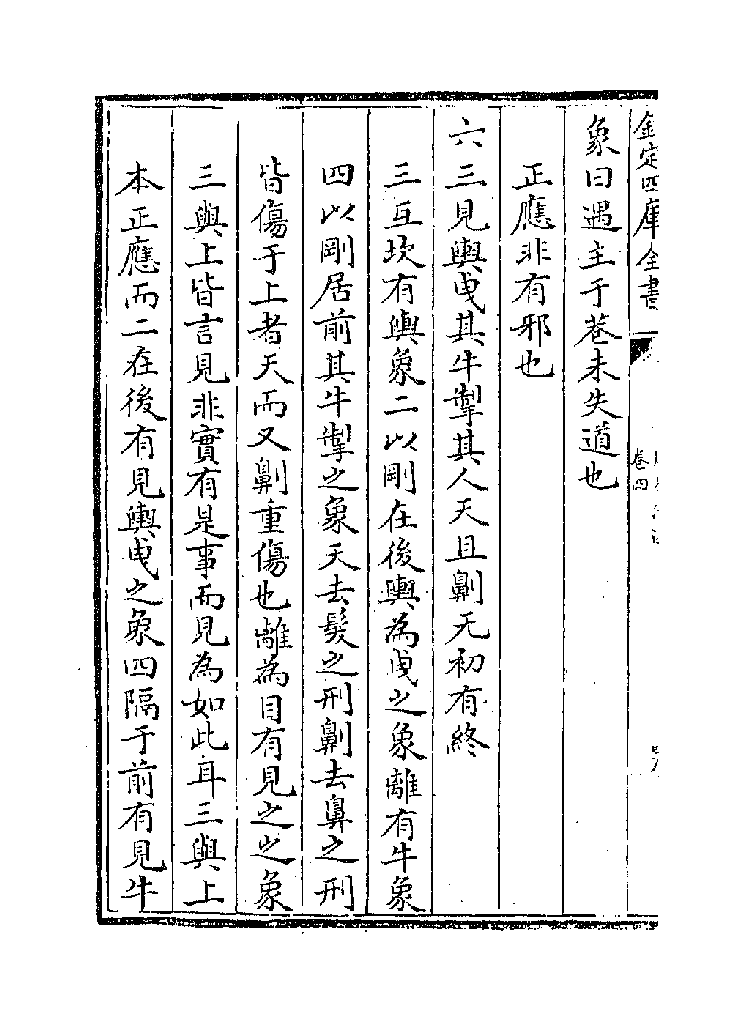 欽定四庫全書
卷四
象曰遇主于巷未失道也
正應非有邪也
六三見輿曳其牛掣其人天且劓无初有終
三互坎有輿象二以剛在後輿為曳之象離有牛象
四以剛居前其牛掣之象天去髮之刑劓去鼻之刑
皆傷于上者天而又劓重傷也離為目有見之之象
三與上皆言見非實有是事而見為如此耳三與上
本正應而二在後有見輿曳之象四隔于前有見牛